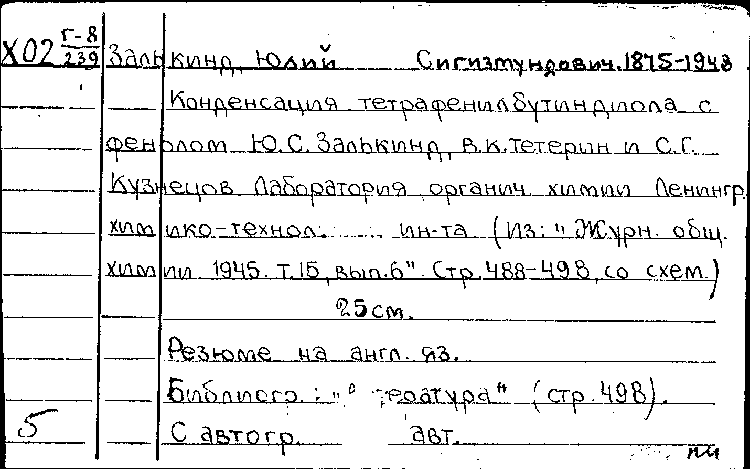 Х02 Г-8/239 Залькинд, Юлий Сигизмундович. 1875-1948
Конденсация тетрафенилбутиндиола с
фенолом Ю.С. Залькинд, В.К. Тетерин и С.Г.
Кузнецов Лаборатория органич. химии Ленингр.
химико-технол. ин-та (Из: "Журн. общ.
химии 1945. Т.15, вып.6". Стр. 488-498, со схем.)
25см.
Резюме на англ. яз.
Библиогр.: " (стр. 498).
5 С автогр. авт.